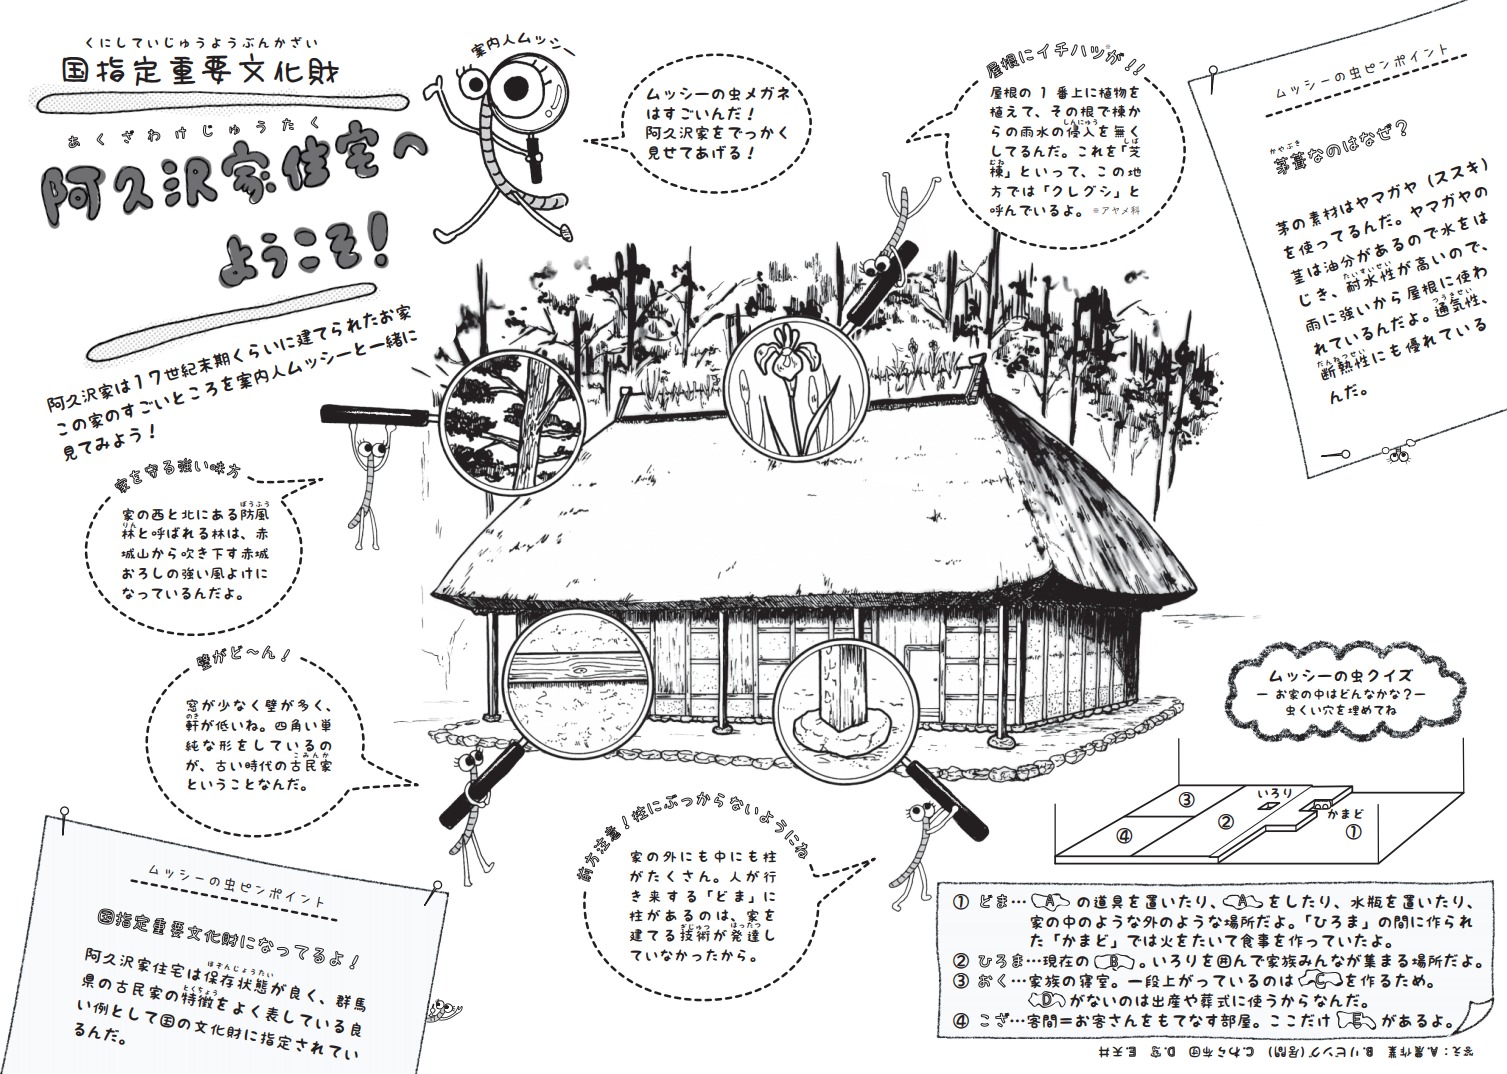 くにしていじゅうようぶんかざい
国指定重要文化財
あくざわけじゅうたく
阿久沢家住宅へ
ようこそ!
阿久沢家は17世紀末期くらいに建てられたお家
この家のすごいところを案内人ムッシーと一緒に
見てみよう!
案内人ムッシー
ムッシーの虫メガネ
はすごいんだ!
阿久沢家をでっかく
見せてあげる!
屋根にイチハツ※が!!
屋根の1番上に植物を
植えて、その根で棟か
しんにゅう
らの雨水の侵入を無く
しば
してるんだ。これを「芝
むね
棟」といって、この地
方では「クレグシ」と
呼んでいるよ。※アヤメ科
ムッシーの虫ピンポイント
かやぶき
茅葺なのはなぜ?
茅の素材はヤマガヤ(ススキ)
を使ってるんだ。ヤマガヤの
茎は油分があるので水をは
たいすいせい
じき、耐水性が高いので、
雨に強いから屋根に使わ
つうきせい
れているんだよ。通気性、
だんねつせい
断熱性にも優れている
んだ。
家を守る強い味方
ぼうふう
家の西と北にある防風
りん
林と呼ばれる林は、赤
城山から吹き下す赤城
おろしの強い風よけに
なっているんだよ。
壁がど〜ん!
窓が少なく壁が多く、
のき
軒が低いね。四角い単
純な形をしているの
こみんか
が、古い時代の古民家
ということなんだ。
前方注意!柱にぶっからないようにね
家の外にも中にも柱
がたくさん。人が行
き来する「どま」に
柱があるのは、家を
ぎじゅつ はったつ
建てる技術が発達し
ていなかったから。
ムッシーの虫ピンポイント
国指定重要文化財になってるよ!
ほぞんじょうたい
阿久沢家住宅は保存状態が良く、群馬
とくちょう
県の古民家の特徴をよく表している良
い例として国の文化財に指定されてい
るんだ。
ムッシーの虫クイズ
ー お家の中はどんなかな?ー
虫くい穴を埋めてね
③
いろり
②
かまど
①
④
① どま…Aの道具を置いたり、Aをしたり、水瓶を置いたり、
家の中のような外のような場所だよ。「ひろま」の間に作られ
た「かまど」では火をたいて食事を作っていたよ。
② ひろま…現在のB。いろりを囲んで家族みんなが集まる場所だよ。
③ おく…家族の寝室。一段上がっているのはCを作るため。
Dがないのは出産や葬式に使うからなんだ。
④ こざ…客間=お客さんをもてなす部屋。ここだけEがあるよ。
答え:A.農作業 B.リビング(居間) C.わら布団 D.窓 E.天井